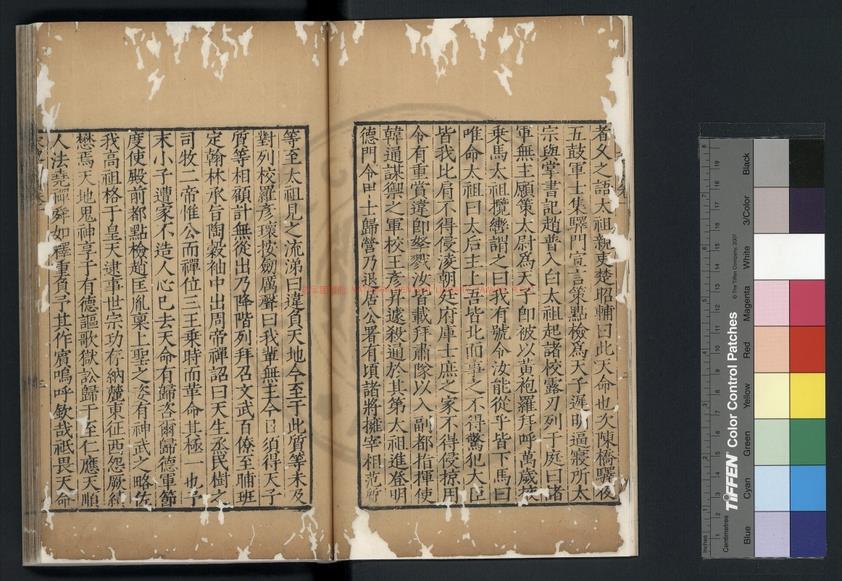 者久之語太祖親吏楚昭輔曰此天命也次陳橋驛夜
五鼓軍士集驛門宣言策點檢為天子遲明逼寢所太
宗與掌書記趙普入白太祖起諸校露刃列于庭曰諸
軍無主願策太尉為天子即被以黃袍羅拜呼萬歲挾
乘馬太祖攬轡謂之曰我有號令汝能從乎皆下馬曰
唯命太祖曰太后主上吾皆北面事之不得驚犯大臣
皆我比肩不得侵淩朝廷府庫士庶之家不得侵掠用
令有重賞違即孥戮汝皆載拜肅隊以入副都指揮使
韓通謀禦之軍校王彥昇遽殺通於其第太祖進登明
德門令甲士歸營乃退居公署有頃諸將擁宰相范質
等至太祖見之流涕曰違負天地今至于此質等未及
對列校羅彥瓌按劒厲聲曰我輩無主今日須得天子
質等相顧計無從出乃降階列拜召文武百僚至晡班
定翰林承旨陶穀袖中出周帝禪詔曰天生蒸民樹之
司牧二帝惟公而禪位三王乘時而革命其極一也予
末小子遭家不造人心已去天命有歸咨爾歸德軍節
度使殿前都點檢趙匡胤稟上聖之姿有神武之略佐
我高祖格于皇天逮事世宗功存納麓東征西怨厥績
懋焉天地鬼神享于有德謳歌獄訟歸于至仁應天順
人法堯禪舜如釋重負予其作賓嗚呼欽哉祗畏天命
TIFFEN Color Control Patches
© The Tiffen Company, 2007
Centimetres
Inches
Blue
Cyan
Green
Yellow
Red
Magenta
White
3/Color
Black